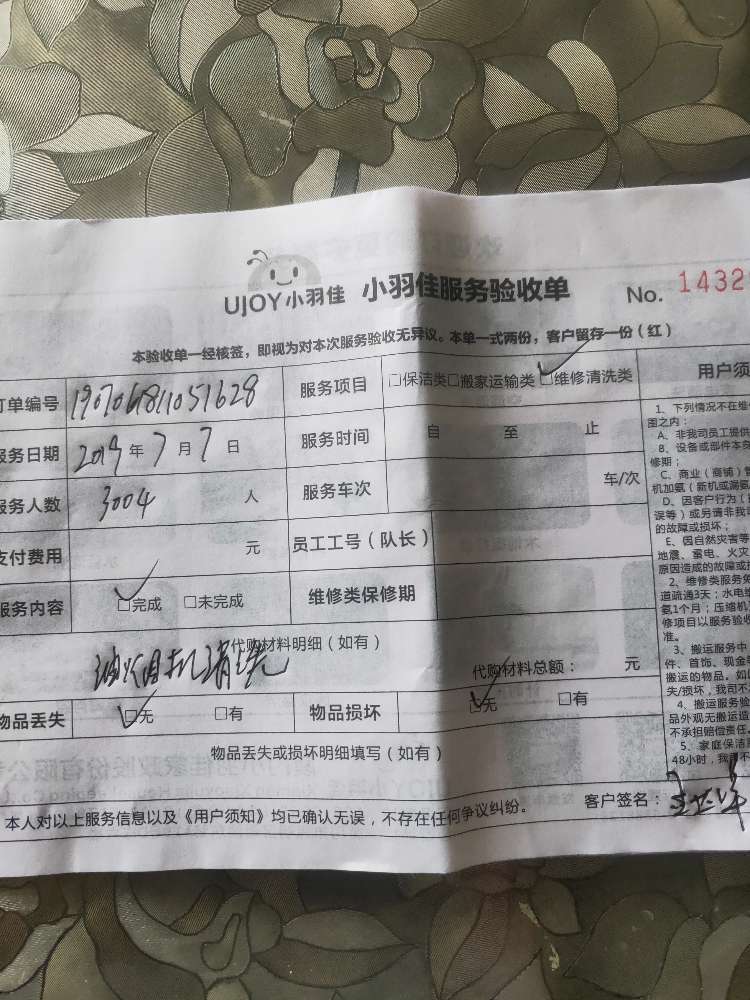 UJOY小羽佳 小羽佳服务验收单 No. 1432
本验收单一经核签，即视为对本次服务验收无异议。本单一式两份，客户留存一份（红）
订单编号 190706811051628 服务项目 □保洁类□搬家运输类□维修清洗类 用户须
服务日期 2019年7月7日 服务时间 自 至 止
服务人数 3004 人 服务车次 车/次
支付费用 元 员工工号（队长）
服务内容 □完成 □未完成 维修类保修期
代购材料明细（如有）
油烟机清洗 代购材料总额： 元
物品丢失 □无 □有 物品损坏 □无 □有
物品丢失或损坏明细填写（如有）
本人对以上服务信息以及《用户须知》均已确认无误，不存在任何争议纠纷。 客户签名：
1、下列情况不在维
图之内：
A、非我司员工提供
B、设备或部件本身
修期；
C、商业（商铺）管
机加氨（新机或漏氨
D、因客户行为（
误等）或另请非我
的故障或损坏；
E、因自然灾害等
地震、雷电、火灾
原因造成的故障或损
2、维修类服务
道疏通3天；水电维
氨1个月；压缩机
修项目以服务验收
准。
3、搬运服务中
件、首饰、现金
搬运的物品。如
失/损坏，我司不
4、搬运服务验
品外观无搬运造
不承担赔偿责任。
5、家庭保洁
48小时，我司不